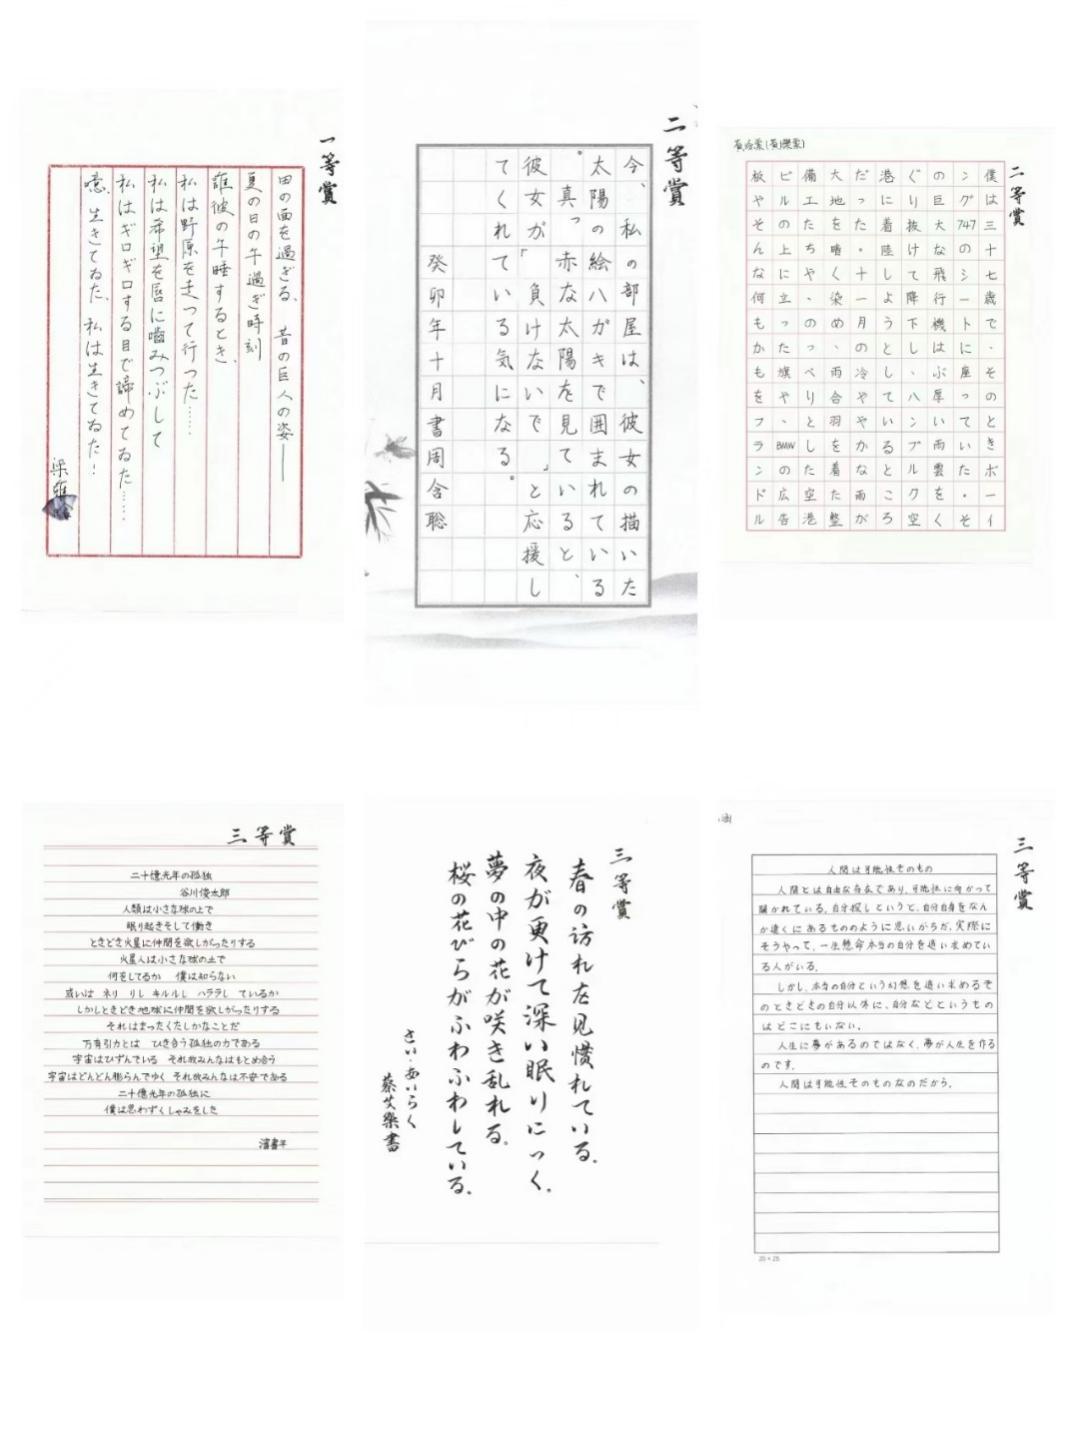 一等賞
田の面を過ぎる、昔の巨人の姿——
夏の日の午過ぎ時刻
誰彼の午睡するとき、
私は野原を走つて行つた……
私は希望を唇に噛みつぶして
私はギロギロする目で諦めてゐた……
噫、生きてゐた、私は生きてゐた！
梁雅
二等賞
今、私の部屋は、彼女の描いた
太陽の絵ハガキで囲まれている
。真っ赤な太陽を見ていると、
彼女が「負けないで」と応援し
てくれている気になる。
癸卯年十月書周含聡
二等賞
僕は三十七歳で、そのときボーイ
ング747のシートに座っていた。そ
の巨大な飛行機はぶ厚い雨雲をく
ぐり抜けて降下し、ハンブルク空
港に着陸しようとしているところ
だった。十一月の冷ややかな雨が
大地を暗く染め、雨合羽を着た整
備工たちや、のっぺりとした空港
ビルの上に立った旗や、BMWの広告
板やそんな何もかもをフランドル
三等賞
二十億光年の孤独
谷川俊太郎
人類は小さな球の上で
眠り起きそして働き
ときどき火星に仲間を欲しがったりする
火星人は小さな球の上で
何をしてるか 僕は知らない
或いは ネリリし キルルし ハララし ているか
しかしときどき地球に仲間を欲しがったりする
それはまったくたしかなことだ
万有引力とは ひき合う孤独の力である
宇宙はひずんでいる それ故みんなはもとめ合う
宇宙はどんどん膨らんでゆく それ故みんなは不安である
二十億光年の孤独に
僕は思わずくしゃみをした
三等賞
春の訪れを見慣れている.
夜が更けて深い眠りにつく.
夢の中の花が咲き乱れる.
桜の花びらがふわふわしている.
さい・あいらく
蔡艾樂書
三等賞
人間は可能性そのもの
人間とは自由な存在であり、可能性に向かって
開かれている。自分探しというと、自分自身をなん
か遠くにあるもののように思いがちだ。実際に
そうやって、一生懸命本当の自分を追い求めてい
る人がいる。
しかし、本当の自分という幻想を追い求めるそ
のときどきの自分以外に、自分などというもの
はどこにもいない。
人生に夢があるのではなく、夢が人生を作る
のです。
人間は可能性そのものなのだから。
20×25